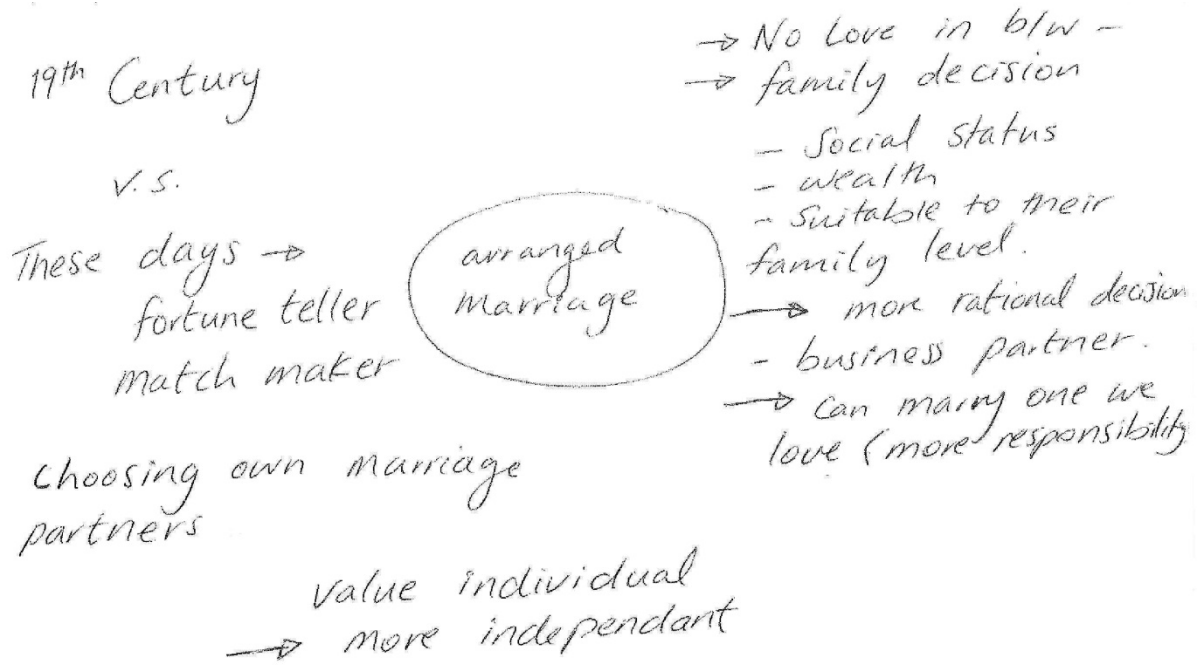 19th Century
v.s.
These days →
fortune teller
match maker
arranged
Marriage
→ No Love in b/w -
→ family decision
- Social status
- wealth
- Suitable to their
family level.
→ more rational decision
- business partner.
→ Can marry one we
love (more responsibility
Choosing own marriage
partners
Value individual
→ more independant